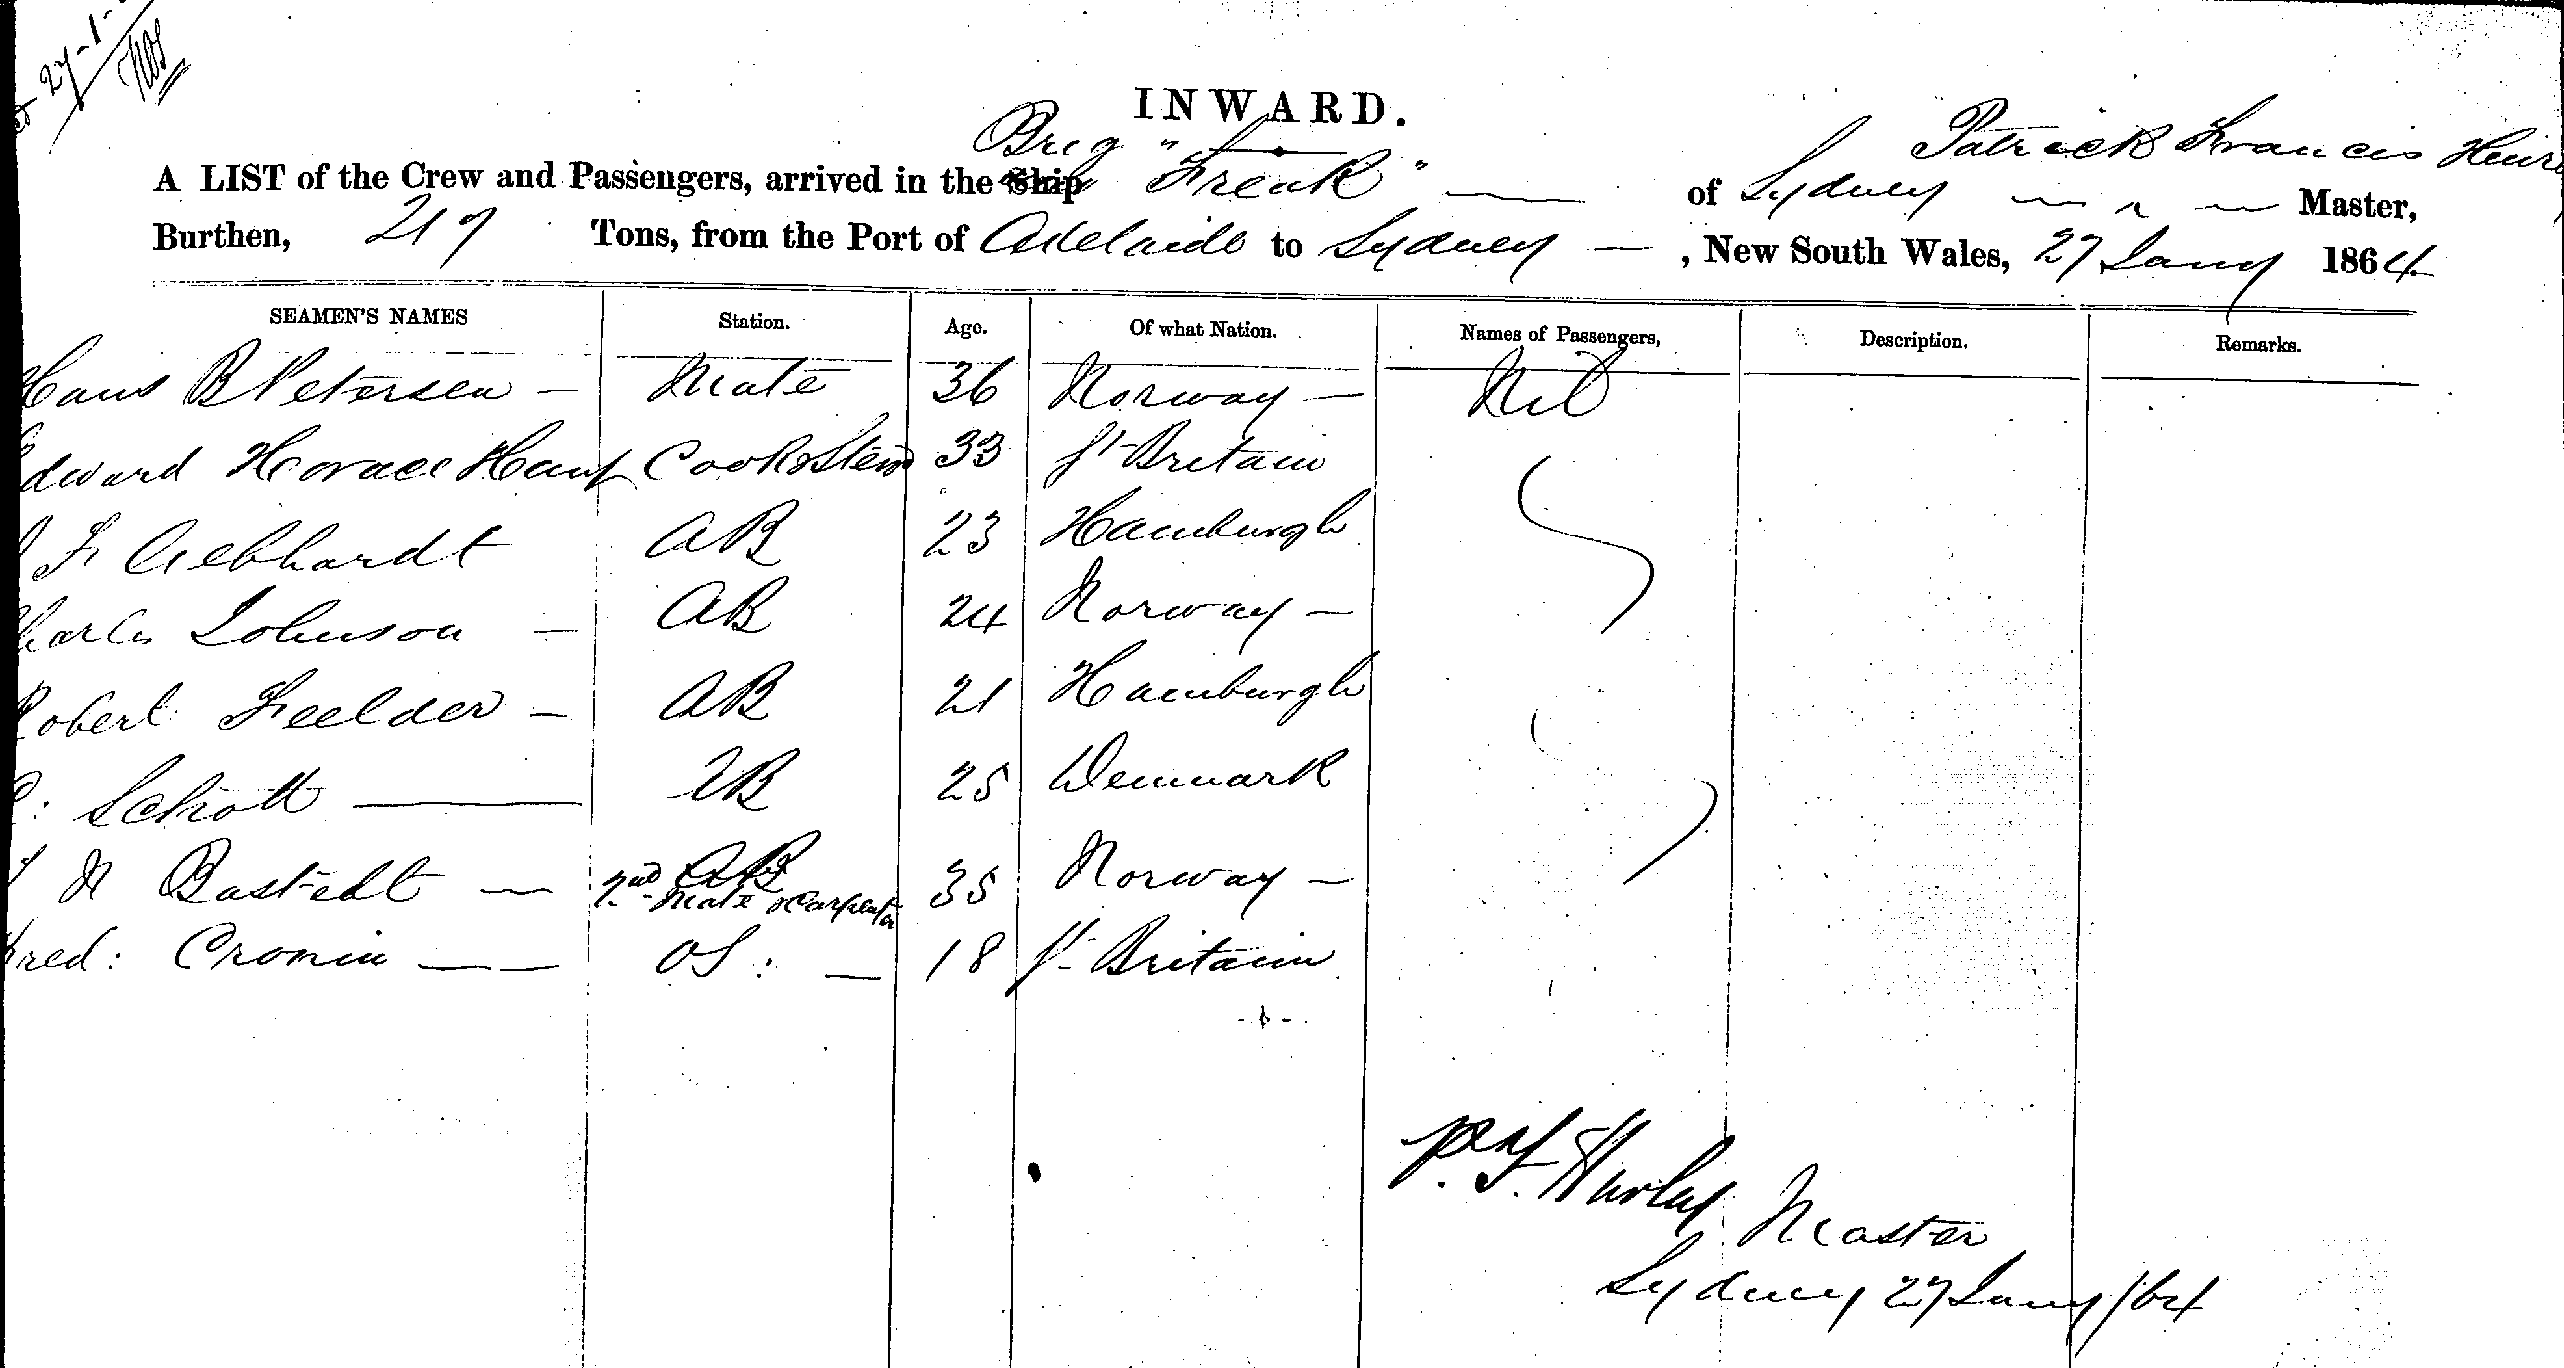 27-1-
INWARD.
Brig "Freak" Patrick Francis
A LIST of the Crew and Passengers, arrived in the Ship of Sydney Master,
Burthen, 217 Tons, from the Port of Adelaide to Sydney — , New South Wales, 27 Jany 1864
SEAMEN'S NAMES Station. Age. Of what Nation. Names of Passengers, Description. Remarks.
Hans B Petersen — Mate 36 Norway — Nil
Edward Horace Cook & Stewd 33 Gt Britain
F Gebhardt AB 23 Hamburgh
Charles Johnson — AB 24 Norway —
Robert Feelder — AB 21 Hamburgh
C: Schott — AB 25 Denmark
N Bastedt — AB 35 Norway —
2nd Mate & Carpenter
Fred: Cronin — OS: — 18 Gt Britain
P. F. Hurley Master
Sydney 27 Jany /64